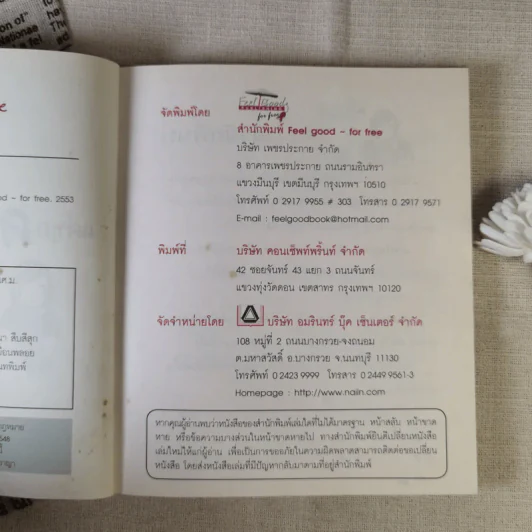 on of"
d - for free. 2553
จัดพิมพ์โดย
Feel Good
PUBLISHING
for free
สำนักพิมพ์ Feel good - for free
บริษัท เพชรประกาย จำกัด
8 อาคารเพชรประกาย ถนนรามอินทรา
แขวงมีนบุรี เขตมีนบุรี กรุงเทพฯ 10510
โทรศัพท์ 0 2917 9955 # 303 โทรสาร 0 2917 9571
E-mail : feelgoodbook@hotmail.com
พิมพ์ที่ บริษัท คอนเซ็พท์พริ้นท์ จำกัด
42 ซอยจันทร์ 43 แยก 3 ถนนจันทร์
แขวงทุ่งวัดดอน เขตสาทร กรุงเทพฯ 10120
จัดจำหน่ายโดย บริษัท อมรินทร์ บุ๊ค เซ็นเตอร์ จำกัด
108 หมู่ที่ 2 ถนนบางกรวย-จงถนอม
ต.มหาสวัสดิ์ อ.บางกรวย จ.นนทบุรี 11130
โทรศัพท์ 0 2423 9999 โทรสาร 0 2449 9561-3
Homepage : http://www.naiin.com
หากคุณผู้อ่านพบว่าหนังสือของสำนักพิมพ์เล่มใดที่ไม่ได้มาตรฐาน หน้าสลับ หน้าขาด
หาย หรือข้อความบางส่วนในหน้าขาดหายไป ทางสำนักพิมพ์ยินดีเปลี่ยนหนังสือ
เล่มใหม่ให้แก่ผู้อ่าน เพื่อเป็นการขออภัยในความผิดพลาดสามารถติดต่อขอเปลี่ยน
หนังสือ โดยส่งหนังสือเล่มที่มีปัญหากลับมาตามที่อยู่สำนักพิมพ์